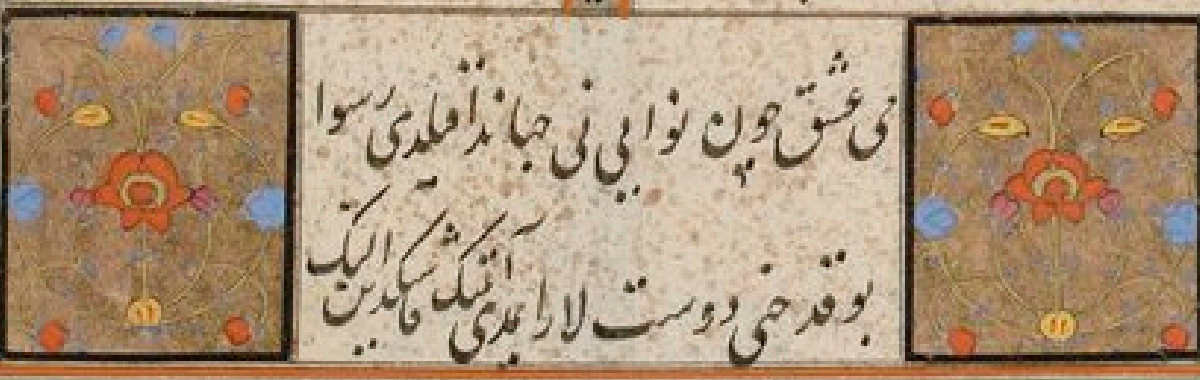 می عشق چون نوایی نی جهاندا قیلدی رسوا
بو قدحنی دوست لار ایمدی آنینک الینک